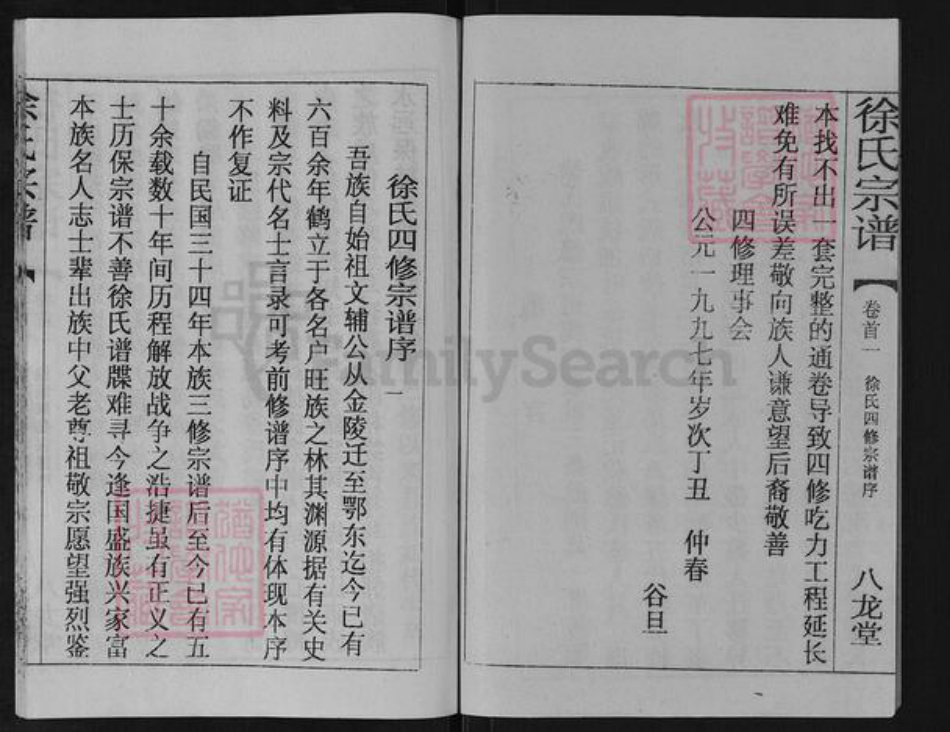 徐氏宗谱
卷首一 徐氏四修宗谱序
八龙堂
本找不出一套完整的通卷导致四修吃力工程延长
难免有所误差敬向族人谦意望后裔敬善
四修理事会
公元一九九七年岁次丁丑 仲春
谷旦
徐氏四修宗谱序一
吾族自始祖文辅公从金陵迁至鄂东迄今已有
六百余年鹤立于各名户旺族之林其渊源据有关史
料及宗代名士言录可考前修谱序中均有体现本序
不作复证
自民国三十四年本族三修宗谱后至今已有五
十余载数十年间历程解放战争之浩捷虽有正义之
士历保宗谱不善徐氏谱牒难寻今逢国盛族兴家富
本族名人志士辈出族中父老尊祖敬宗愿望强烈鉴
徐氏宗谱
FamilySearch